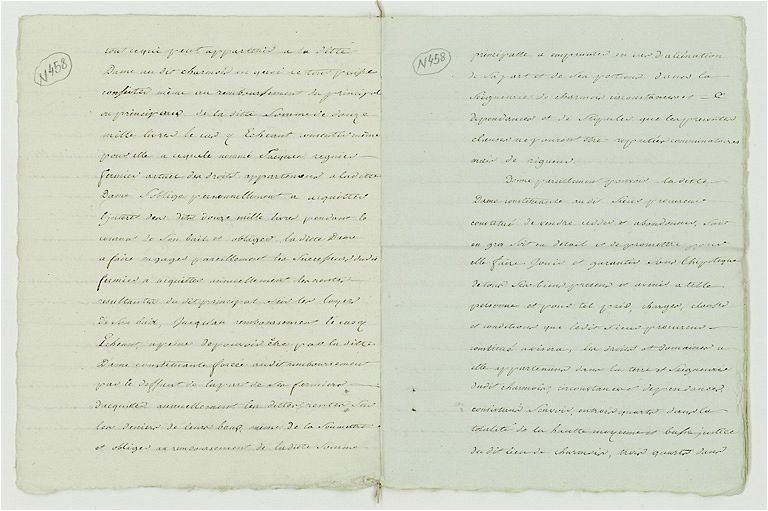 N 458
tout ce qui peut appartenir a la ditte
Dame au dit charmois en quoi le tout puisse
consister même au remboursement du principal
ou principaux de la ditte Somme de douze
mille livres le cas y Echeant consentir même
pour elle a ce que nommé Jacques regnier
fermier actuel des droits appartenans a la ditte
Dame S'oblige personnellement a acquitter
interets des dits douze mille livres pendant le
courant de Son bail et obliger la ditte Dame
a faire engager pareillement les Successeurs du dit
fermier a acquitter annuellement les rentes
resultantes du dit principal Sur les loyers
de Son bail, jusqu'au remboursement le cas y
Echeant, a peine de pouvoir être par la ditte
Dame constituante forcée audit remboursement
par le deffaut de la part de Ses fermiers
d'acquitter annuellement les dittes rentes Sur
les deniers de leurs baux, même de la Soumettre
et obliger au remboursement de la ditte Somme
N 458
principalle a emprunter en cas d'aliénation
de Sa part et de Ses portions dans la
Seigneurie de charmois circonstances et
dependances et de Stipuler que les presentes
clauses ne pouront être reputées comminatoires
mais de rigueur
Donne pareillement pouvoir la ditte
Dame constituante au dit Sieur procureur
constitué de vendre ceder et abandonner, Soit
en gros Soit en détail et de promettre pour
elle faire Jouir et garantir Sous l'hipoteque
de tous Ses biens presens et avenir a telle
personne et pour tel prix, charges, clauses
et conditions que ledit Sieur procureur
constitué avisera, les droits et domaines a
elle appartenans dans la terre et Seigneurie
dudit charmois, circonstances et dependances
consistans Scavoir, en trois quarts dans la
totalité de la haute moyenne et basse justice
du dit lieu de charmois, trois quarts dans